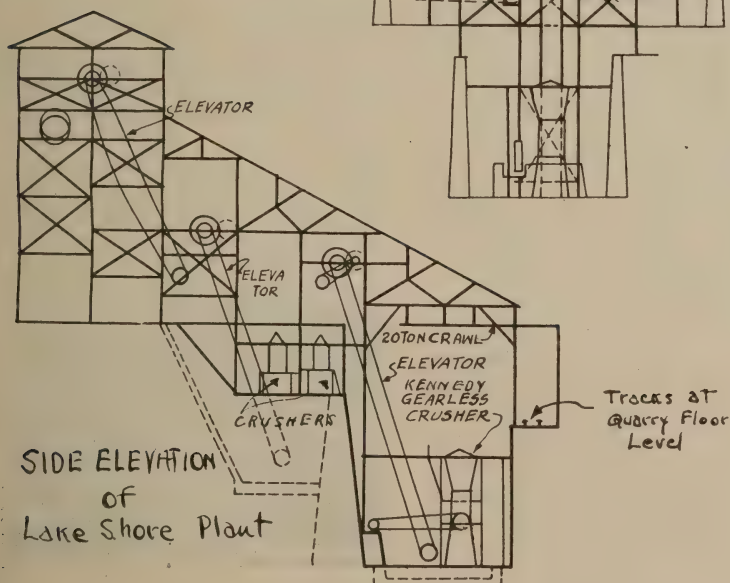 ELEVATOR
ELEVA
TOR
20 TON CRAWL
ELEVATOR
KENNEDY
GEARLESS
CRUSHER
CRUSHERS
Tracks at
Quarry Floor
Level
SIDE ELEVATION
of
Lake Shore Plant